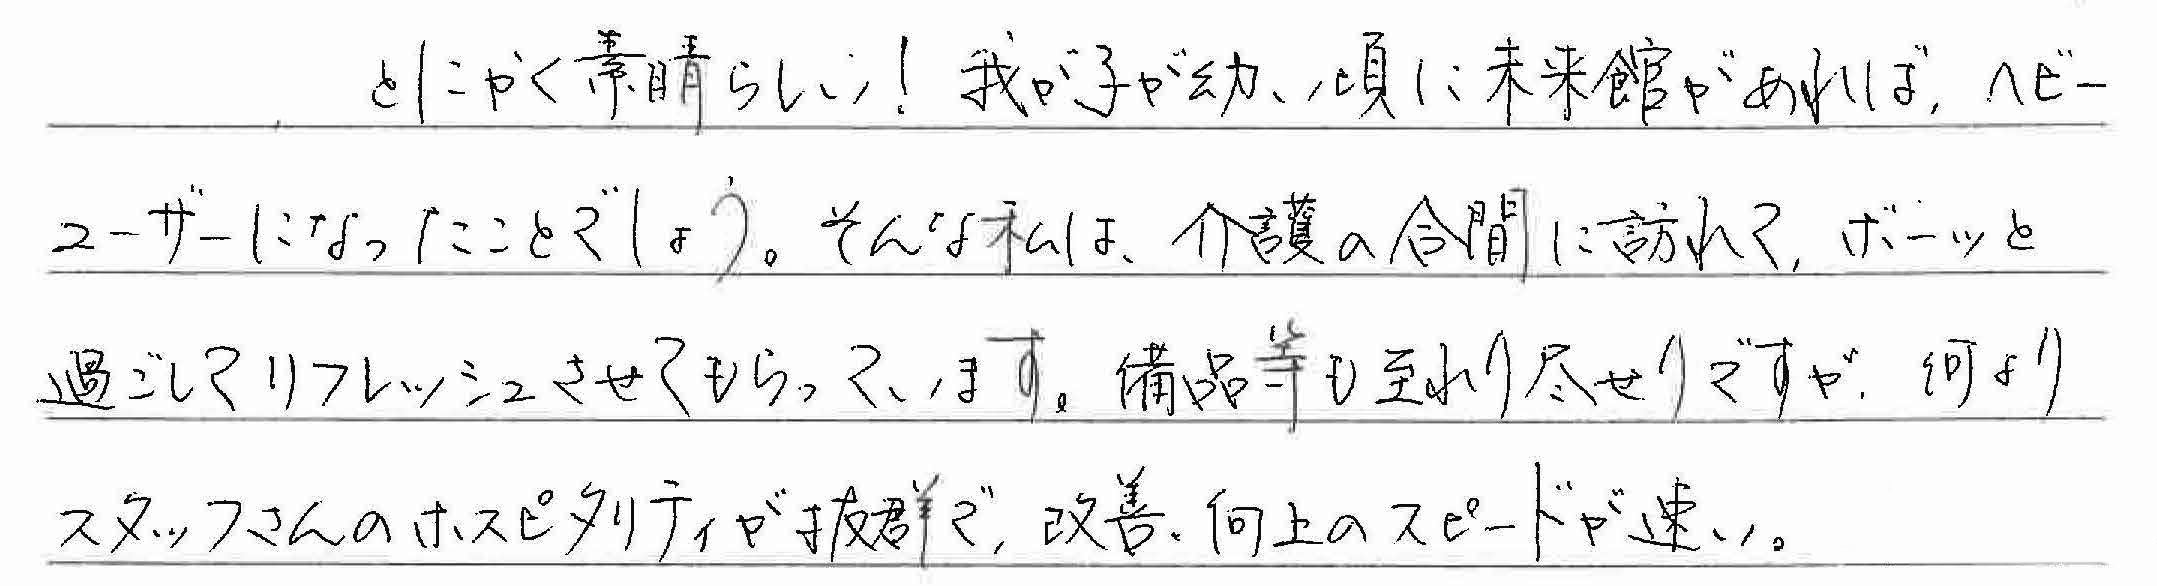 とにかく素晴らしい！我が子が幼い頃に未来館があれば、ヘビー
ユーザーになったことでしょう。そんな私は、介護の合間に訪れて、ボーッと
過ごしてリフレッシュさせてもらっています。備品等も至れり尽せりですが、何より
スタッフさんのホスピタリティが抜群で、改善、向上のスピードが速い。